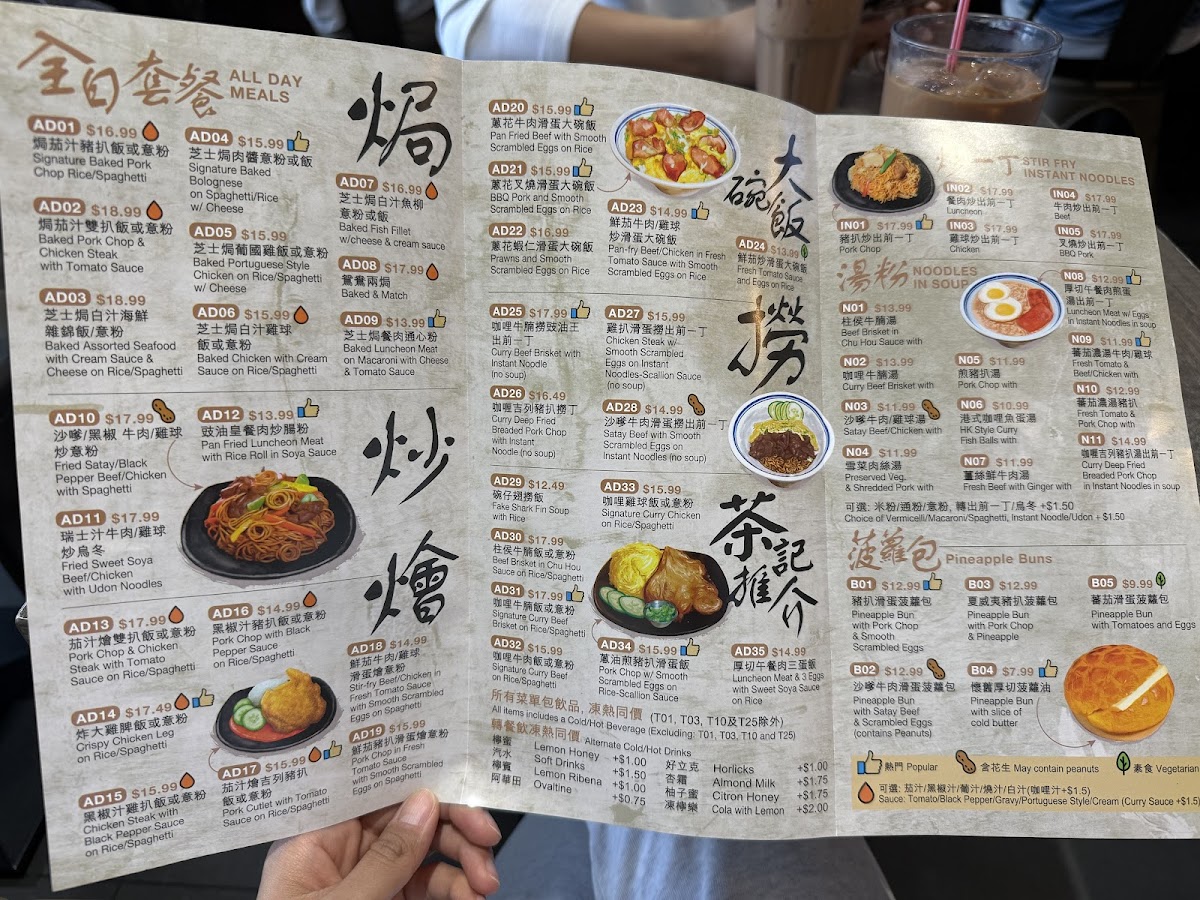 全日套餐
ALL DAY
MEALS
焗
AD01 $16.99
焗茄汁豬扒飯或意粉
Signature Baked Pork
Chop Rice/Spaghetti
AD02 $18.99
焗茄汁雙扒飯或意粉
Baked Pork Chop &
Chicken Steak
with Tomato Sauce
AD03 $18.99
芝士焗白汁海鮮
雜錦飯/意粉
Baked Assorted Seafood
with Cream Sauce &
Cheese on Rice/Spaghetti
AD04 $15.99
芝士焗肉醬意粉或飯
Signature Baked
Bolognese
on Spaghetti/Rice
w/ Cheese
AD05 $15.99
芝士焗葡國雞飯或意粉
Baked Portuguese Style
Chicken on Rice/Spaghetti
w/ Cheese
AD06 $15.99
芝士焗白汁雞球
飯或意粉
Baked Chicken with Cream
Sauce on Rice/Spaghetti
AD07 $16.99
芝士焗白汁魚柳
意粉或飯
Baked Fish Fillet
w/cheese & cream sauce
AD08 $17.99
鴛鴦兩焗
Baked & Match
AD09 $13.99
芝士焗餐肉通心粉
Baked Luncheon Meat
on Macaroni with Cheese
& Tomato Sauce
炒
AD10 $17.99
沙嗲/黑椒 牛肉/雞球
炒意粉
Fried Satay/Black
Pepper Beef/Chicken
with Spaghetti
AD11 $17.99
瑞士汁牛肉/雞球
炒烏冬
Fried Sweet Soya
Beef/Chicken
with Udon Noodles
AD12 $13.99
豉油皇餐肉炒腸粉
Pan Fried Luncheon Meat
with Rice Roll in Soya Sauce
燴
AD13 $17.99
茄汁燴雙扒飯或意粉
Pork Chop & Chicken
Steak with Tomato
Sauce on Rice/Spaghetti
AD14 $17.49
炸大雞脾飯或意粉
Crispy Chicken Leg
on Rice/Spaghetti
AD15 $15.99
黑椒汁雞扒飯或意粉
Chicken Steak with
Black Pepper Sauce
on Rice/Spaghetti
AD16 $14.99
黑椒汁豬扒飯或意粉
Pork Chop with Black
Pepper Sauce
on Rice/Spaghetti
AD17 $15.99
茄汁燴吉列豬扒
飯或意粉
Pork Cutlet with Tomato
Sauce on Rice/Spaghetti
AD18 $14.99
鮮茄牛肉/雞球
滑蛋燴意粉
Stir-fry Beef/Chicken in
Fresh Tomato Sauce
with Smooth Scrambled
Eggs on Spaghetti
AD19 $15.99
鮮茄豬扒滑蛋燴意粉
Pork Chop in Fresh
Tomato Sauce
with Smooth Scrambled
Eggs on Spaghetti
大碗飯
AD20 $15.99
蔥花牛肉滑蛋大碗飯
Pan Fried Beef with Smooth
Scrambled Eggs on Rice
AD21 $15.99
蔥花叉燒滑蛋大碗飯
BBQ Pork and Smooth
Scrambled Eggs on Rice
AD22 $16.99
蔥花蝦仁滑蛋大碗飯
Prawns and Smooth
Scrambled Eggs on Rice
AD23 $14.99
鮮茄牛肉/雞球
炒滑蛋大碗飯
Pan-fry Beef/Chicken in Fresh
Tomato Sauce with Smooth
Scrambled Eggs on Rice
AD24 $13.99
鮮茄炒滑蛋大碗飯
Fresh Tomato Sauce
and Eggs on Rice
撈
AD25 $17.99
咖哩牛腩撈豉油王
出前一丁
Curry Beef Brisket with
Instant Noodle
(no soup)
AD26 $16.49
咖喱吉列豬扒撈丁
Curry Deep Fried
Breaded Pork Chop
with Instant
Noodle (no soup)
AD27 $15.99
雞扒滑蛋撈出前一丁
Chicken Steak w/
Smooth Scrambled
Eggs on Instant
Noodles-Scallion Sauce
(no soup)
AD28 $14.99
沙嗲牛肉滑蛋撈出前一丁
Satay Beef with Smooth
Scrambled Eggs on
Instant Noodles (no soup)
茶記推介
AD29 $12.49
碗仔翅撈飯
Fake Shark Fin Soup
with Rice
AD30 $17.99
柱侯牛腩飯或意粉
Beef Brisket in Chu Hou
Sauce on Rice/Spaghetti
AD31 $17.99
咖哩牛腩飯或意粉
Signature Curry Beef
Brisket on Rice/Spaghetti
AD32 $15.99
咖哩牛肉飯或意粉
Signature Curry Beef
on Rice/Spaghetti
AD33 $15.99
咖喱雞球飯或意粉
Signature Curry Chicken
on Rice/Spaghetti
AD34 $15.99
蔥油煎豬扒滑蛋飯
Pork Chop w/ Smooth
Scrambled Eggs on
Rice-Scallion Sauce
AD35 $14.99
厚切午餐肉三蛋飯
Luncheon Meat & 3 Eggs
with Sweet Soya Sauce
on Rice
所有菜單包飲品，凍熱同價 (T01, T03, T10及T25除外)
All items includes a Cold/Hot Beverage (Excluding: T01, T03, T10 and T25)
轉餐飲凍熱同價 Alternate Cold/Hot Drinks
檸蜜 Lemon Honey +$1.00
汽水 Soft Drinks +$1.50
檸賓 Lemon Ribena +$1.00
阿華田 Ovaltine +$0.75
好立克 Horlicks +$1.00
杏霜 Almond Milk +$1.75
柚子蜜 Citron Honey +$1.75
凍檸樂 Cola with Lemon +$2.00
一丁 STIR FRY
INSTANT NOODLES
IN01 $17.99
豬扒炒出前一丁
Pork Chop
IN02 $17.99
餐肉炒出前一丁
Luncheon
IN03 $17.99
雞球炒出前一丁
Chicken
IN04 $17.99
牛肉炒出前一丁
Beef
IN05 $17.99
叉燒炒出前一丁
BBQ Pork
湯粉 NOODLES
IN SOUP
N01 $13.99
柱侯牛腩湯
Beef Brisket in
Chu Hou Sauce with
N02 $13.99
咖哩牛腩湯
Curry Beef Brisket with
N03 $11.99
沙嗲牛肉/雞球湯
Satay Beef/Chicken with
N04 $11.99
雪菜肉絲湯
Preserved Veg.
& Shredded Pork with
N05 $11.99
煎豬扒湯
Pork Chop with
N06 $10.99
港式咖哩魚蛋湯
HK Style Curry
Fish Balls with
N07 $11.99
薑絲鮮牛肉湯
Fresh Beef with Ginger with
N08 $12.99
厚切午餐肉煎蛋
湯出前一丁
Luncheon Meat w/ Eggs
in Instant Noodles in soup
N09 $11.99
蕃茄濃湯牛肉/雞球
Fresh Tomato &
Beef/Chicken with
N10 $12.99
蕃茄濃湯豬扒
Fresh Tomato &
Pork Chop with
N11 $14.99
咖喱吉列豬扒湯出前一丁
Curry Deep Fried
Breaded Pork Chop
in Instant Noodles in soup
可選: 米粉/通粉/意粉, 轉出前一丁/烏冬 +$1.50
Choice of Vermicelli/Macaroni/Spaghetti, Instant Noodle/Udon + $1.50
菠蘿包 Pineapple Buns
B01 $12.99
豬扒滑蛋菠蘿包
Pineapple Bun
with Pork Chop
& Smooth
Scrambled Eggs
B02 $12.99
沙嗲牛肉滑蛋菠蘿包
Pineapple Bun
with Satay Beef
& Scrambled Eggs
(contains Peanuts)
B03 $12.99
夏威夷豬扒菠蘿包
Pineapple Bun
with Pork Chop
& Pineapple
B04 $7.99
懷舊厚切菠蘿油
Pineapple Bun
with slice of
cold butter
B05 $9.99
蕃茄滑蛋菠蘿包
Pineapple Bun
with Tomatoes and Eggs
熱門 Popular 含花生 May contain peanuts 素食 Vegetarian
可選: 茄汁/黑椒汁/葡汁/燒汁/白汁(咖哩汁+$1.5)
Sauce: Tomato/Black Pepper/Gravy/Portuguese Style/Cream (Curry Sauce +$1.5)